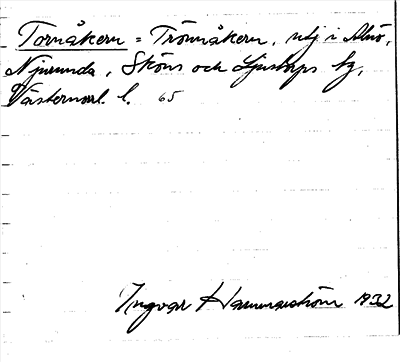 Tornåkern = Trönnåkern, utj i Alnö,
Njurunda, Sköns och Ljustorps sg,
Västernorrl. l. 65
Ingvar Hammarström 1932